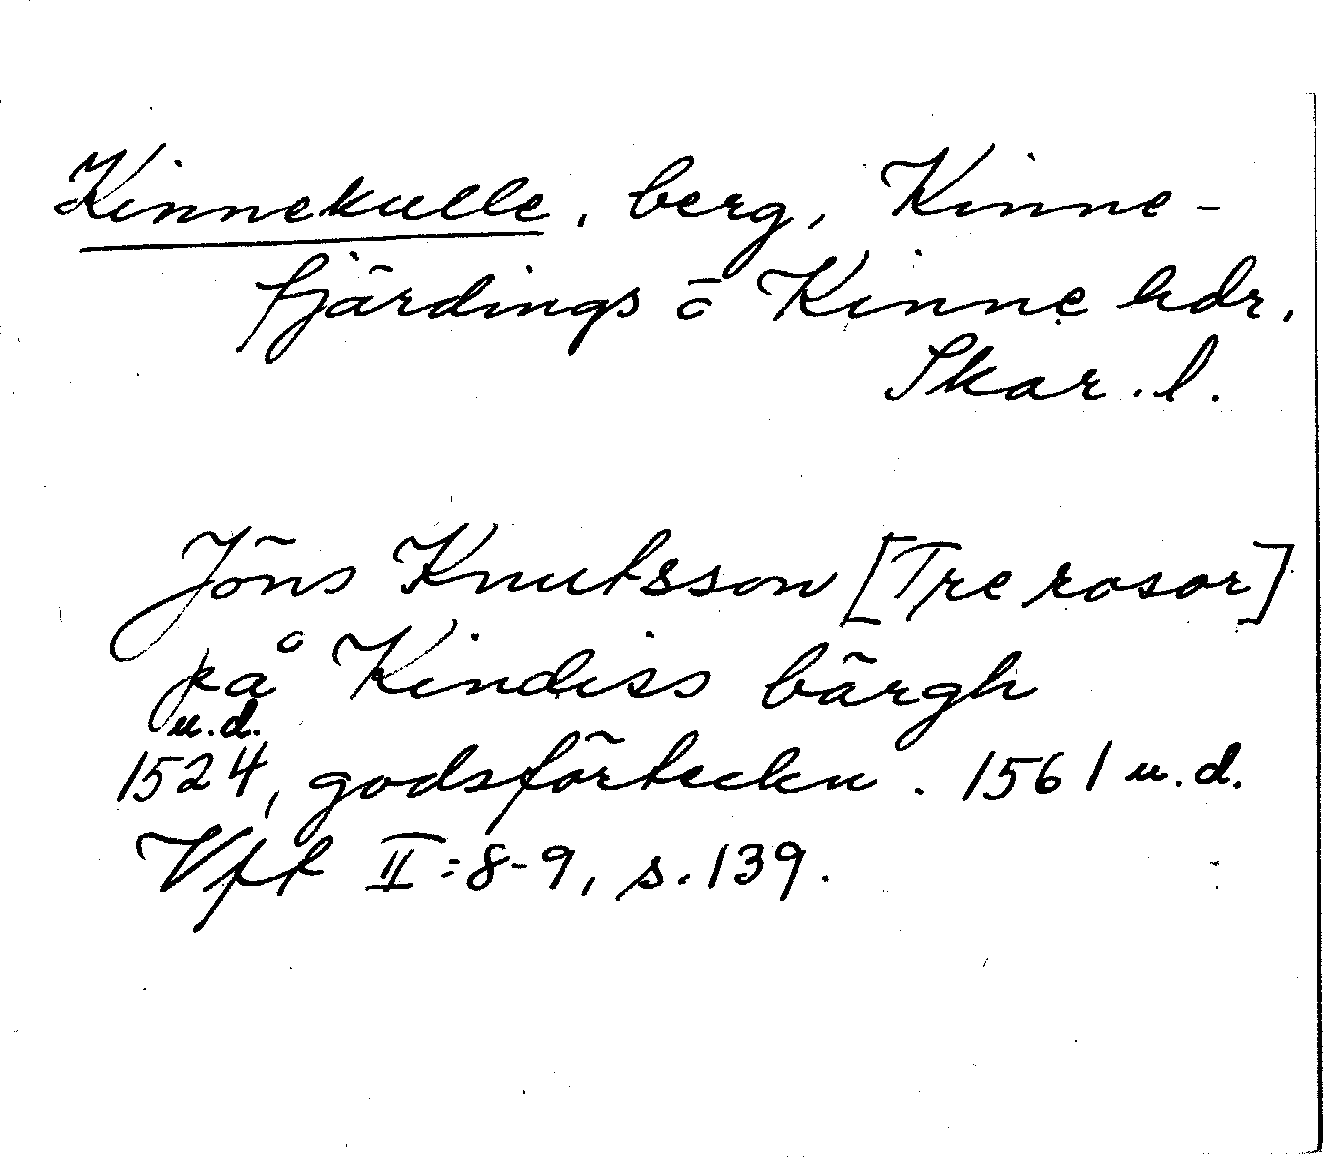 Kinnekulle, berg, Kinne-
fjärdings o Kinne hdr,
Skar. l.
Jöns Knutsson [Tre rosor]
på Kindiss bärgh
u.d.
1524, godsförteckn. 1561 u.d.
Vff II:8-9, s.139.